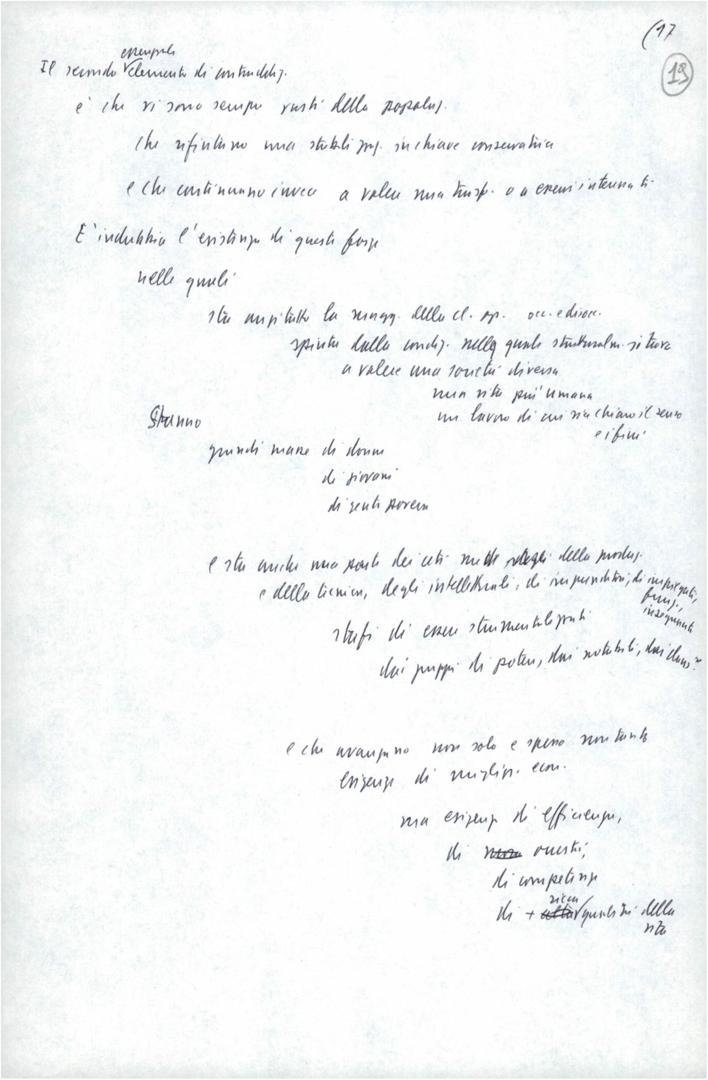 (17
19
essenziale
Il secondo elemento di contraddiz.
è che vi sono sempre vasti della popolaz.
che rifiutano una stabilizzaz. in chiave conservatrice
e che continuano invece a volere una trasf. o a esservi interessati
E' indubbia l'esistenza di queste forze
nelle quali
sta anzitutto la magg. della cl. op. occ. e disocc.
spinta dalla condiz. nella quale strutturalm. si trova
a volere una società diversa
una vita più umana
un lavoro di cui sia chiaro il senso
e i fini
Stanno
quindi masse di donne
di giovani
di gente povera
e sta anche una parte dei ceti medi della produz.
e della tecnica, degli intellettuali, di imprenditori, di impiegati,
funz.,
insegnanti
stufi di essere strumentalizzati
dai gruppi di potere, dai notabili, dai
e che avanzano non solo e spesso non tanto
esigenze di miglior. econ.
ma esigenze di efficienza,
di onestà,
di competenza
ricca
di + qualità della
vita